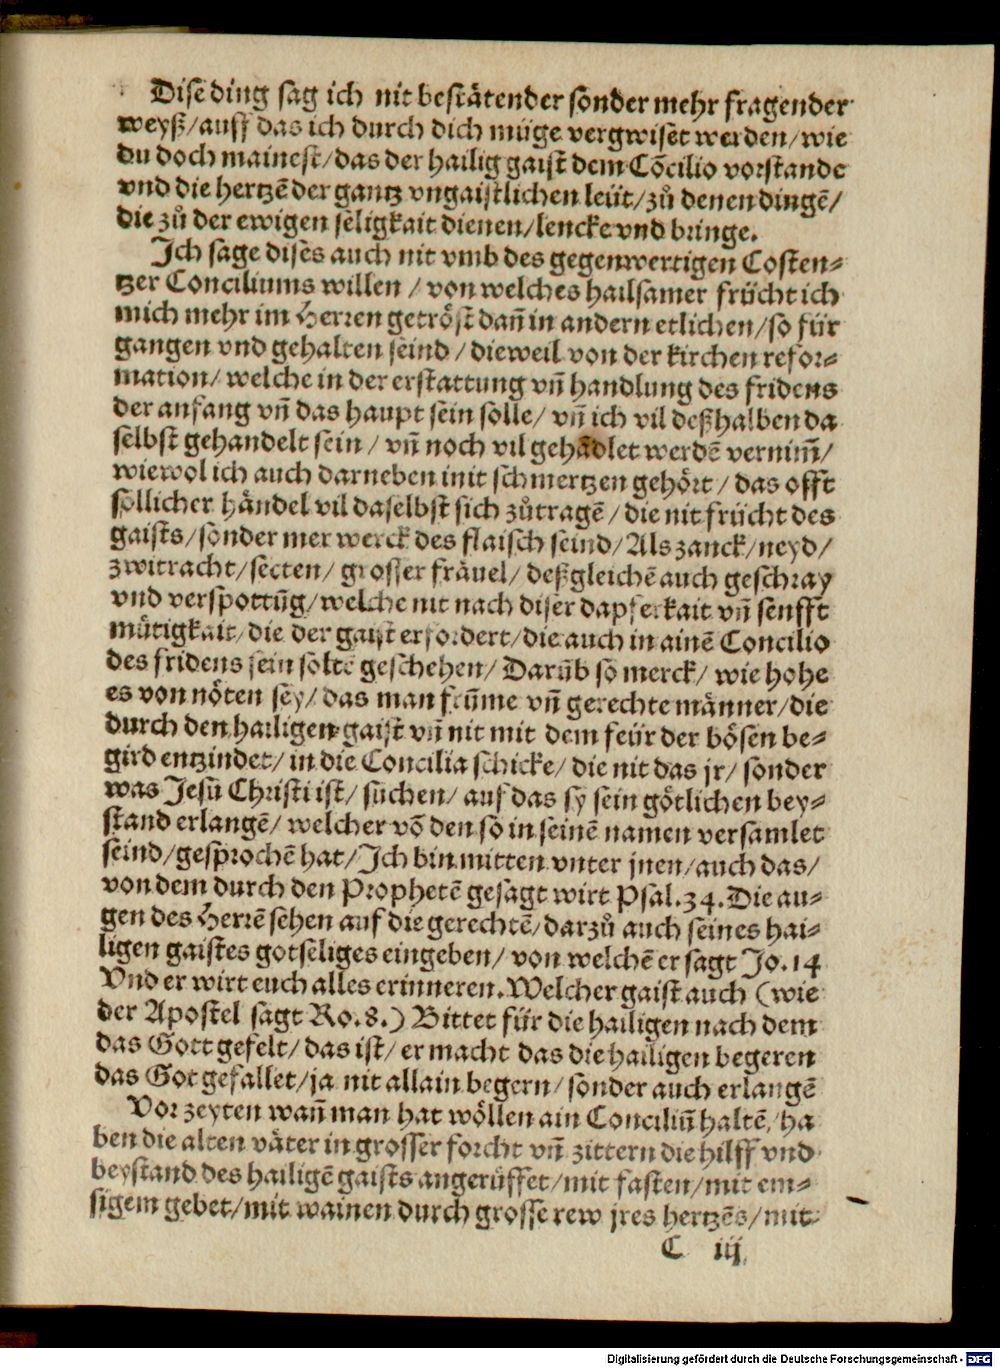 Dise ding sag ich nit bestätender sonder mehr fragender
weyß/auff das ich durch dich müge vergwiset werden/wie
du doch mainest/das der hailig gaist dem Cōcilio vorstande
vnd die hertzē der gantz vngaistlichen leüt/zů denen dingē/
die zů der ewigen seligkait dienen/lencke vnd bringe.
Ich sage dises auch nit vmb des gegenwertigen Costen⸗
tzer Conciliums willen / von welches hailsamer frücht ich
mich mehr im Herren getröst dañ in andern etlichen/so für
gangen vnd gehalten seind / dieweil von der kirchen refor⸗
mation/ welche in der erstattung vñ handlung des fridens
der anfang vñ das haupt sein solle/ vñ ich vil deßhalben da
selbst gehandelt sein / vñ noch vil gehādlet werdē vernim̃/
wiewol ich auch darneben mit schmertzen gehört / das offt
sollicher händel vil daselbst sich zůtragē / die nit frücht des
gaists/sonder mer werck des flaisch seind/Als zanck/neyd/
zwitracht/secten/ grosser fräuel/ deßgleichē auch geschray
vnd verspottūg/welche nit nach diser dapferkait vñ senfft
mütigkait/die der gaist erfordert/die auch in ainē Concilio
des fridens sein solte geschehen/ Darūb so merck/ wie hohe
es von nöten sey/das man frūme vñ gerechte männer/die
durch den hailigen gaist vñ nit mit dem feür der bösen be⸗
gird entzindet/ in die Concilia schicke/ die nit das jr/ sonder
was Jesu Christi ist/ suchen/ auf das sy sein götlichen bey⸗
stand erlangē/ welcher vō den so in seinē namen versamlet
seind/gesprochē hat/Ich bin mitten vnter jnen/auch das/
von dem durch den Prophetē gesagt wirt Psal.34.Die au⸗
gen des Herrē sehen auf die gerechtē/darzů auch seines hai⸗
ligen gaistes gotseliges eingeben/ von welchē er sagt Jo.14
Vnd er wirt euch alles erinneren.Welcher gaist auch (wie
der Apostel sagt Ro.8.) Bittet für die hailigen nach dem
das Gott gefelt/das ist/ er macht das die hailigen begeren
das Got gefallet/ja nit allain begern/sonder auch erlangē
Vor zeyten wañ man hat wöllen ain Conciliū haltē/ha
ben die alten väter in grosser forcht vñ zittern die hilff vnd
beystand des hailigē gaists angerüffet/mit fasten/mit em⸗
sigem gebet/mit wainen durch grosse rew jres hertzēs/mit
C iij
Digitalisierung gefördert durch die Deutsche Forschungsgemeinschaft - DFG